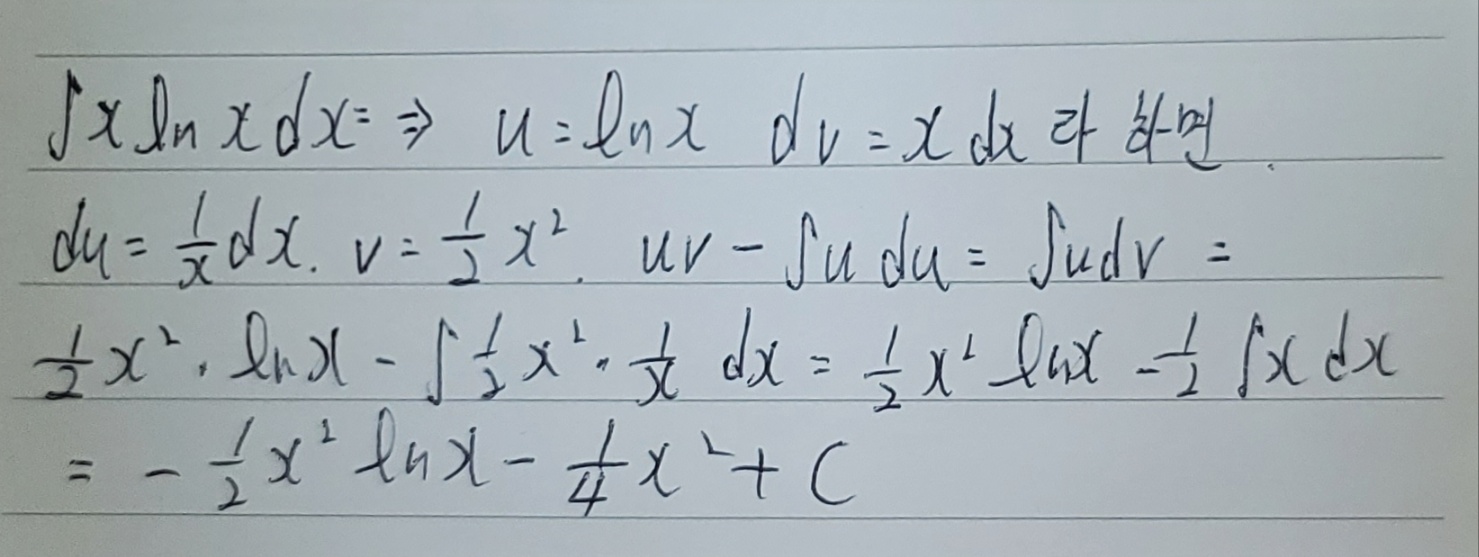 ∫x ln x dx = ⇒ u = ln x dv = x dx 라 하면.
du = 1/x dx. v = 1/2 x². uv - ∫u du = ∫u dv =
1/2 x² · ln x - ∫ 1/2 x² · 1/x dx = 1/2 x² ln x - 1/2 ∫x dx
= - 1/2 x² ln x - 1/4 x² + C